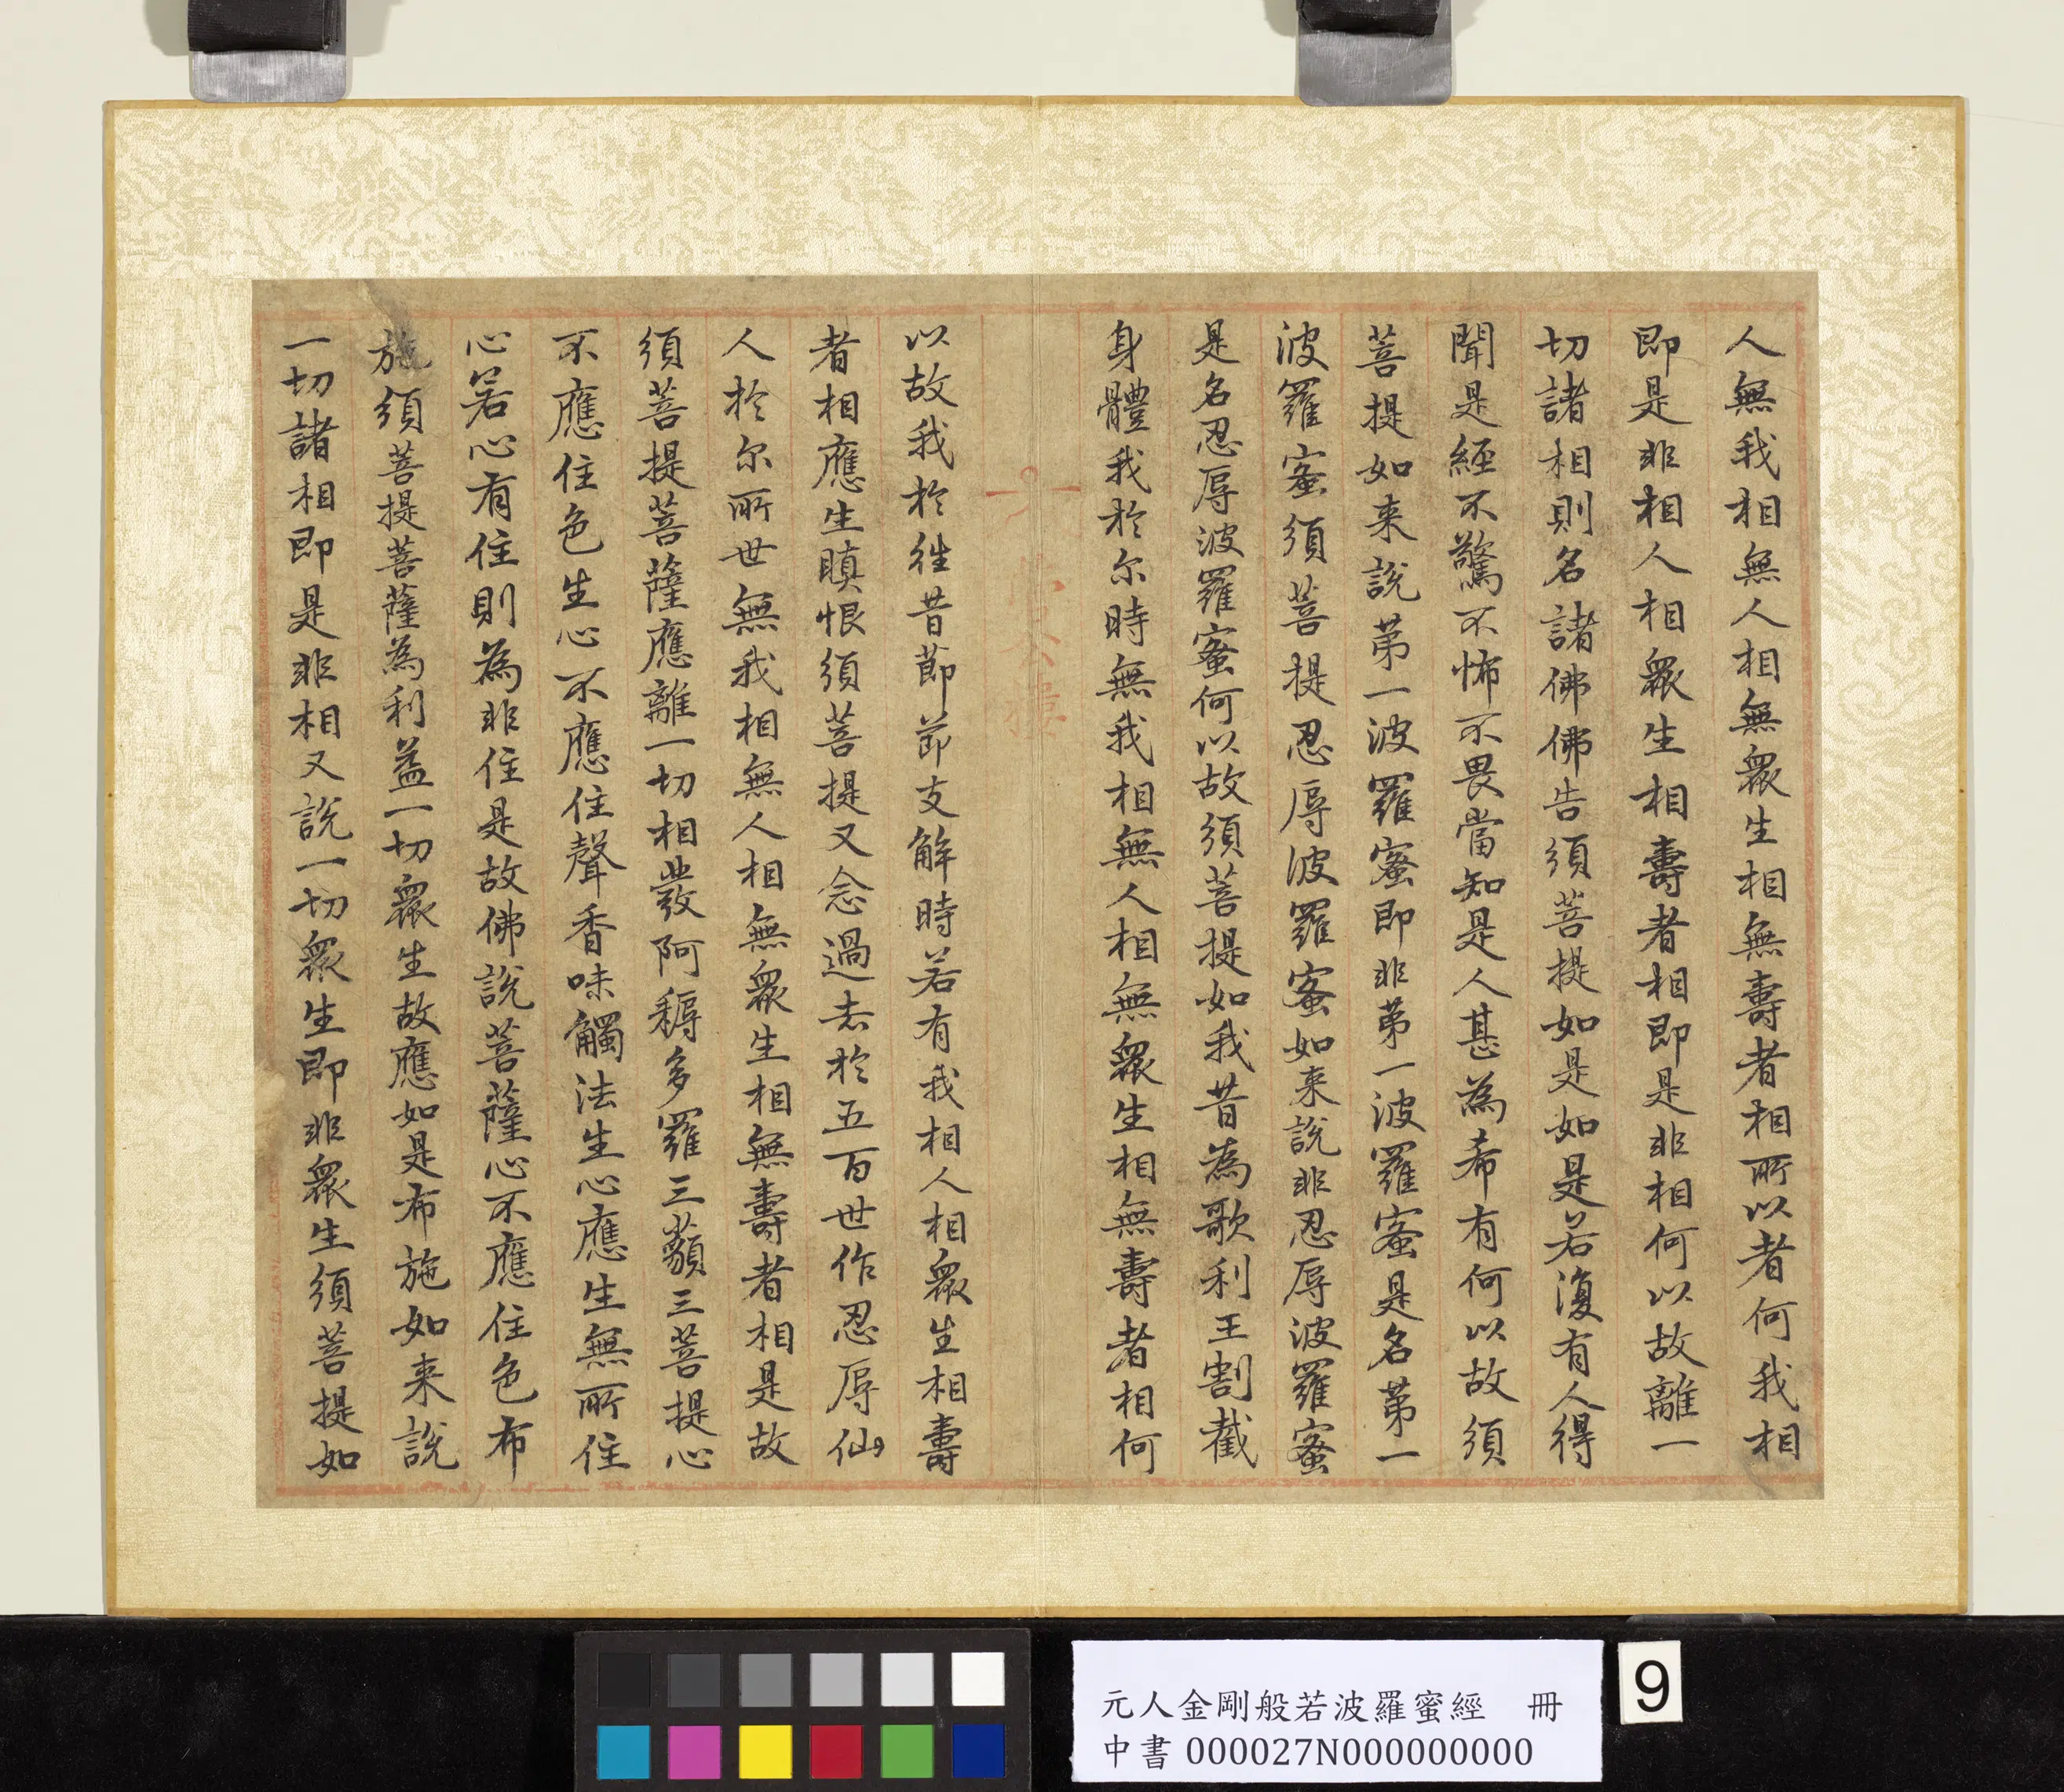 人無我相無人相無衆生相無壽者相所以者何我相
即是非相人相衆生相壽者相即是非相何以故離一
切諸相則名諸佛佛告須菩提如是如是若復有人得
聞是經不驚不怖不畏當知是人甚為希有何以故須
菩提如来說第一波羅蜜即非第一波羅蜜是名第一
波羅蜜須菩提忍辱波羅蜜如来說非忍辱波羅蜜
是名忍辱波羅蜜何以故須菩提如我昔為歌利王割截
身體我於尔時無我相無人相無衆生相無壽者相何
以故我於往昔節節支解時若有我相人相衆生相壽
者相應生瞋恨須菩提又念過去於五百世作忍辱仙
人於尔所世無我相無人相無衆生相無壽者相是故
須菩提菩薩應離一切相發阿耨多羅三藐三菩提心
不應住色生心不應住聲香味觸法生心應生無所住
心若心有住則為非住是故佛說菩薩心不應住色布
施須菩提菩薩為利益一切衆生故應如是布施如来說
一切諸相即是非相又說一切衆生即非衆生須菩提如
元人金剛般若波羅蜜經　冊
中書 000027N000000000
9